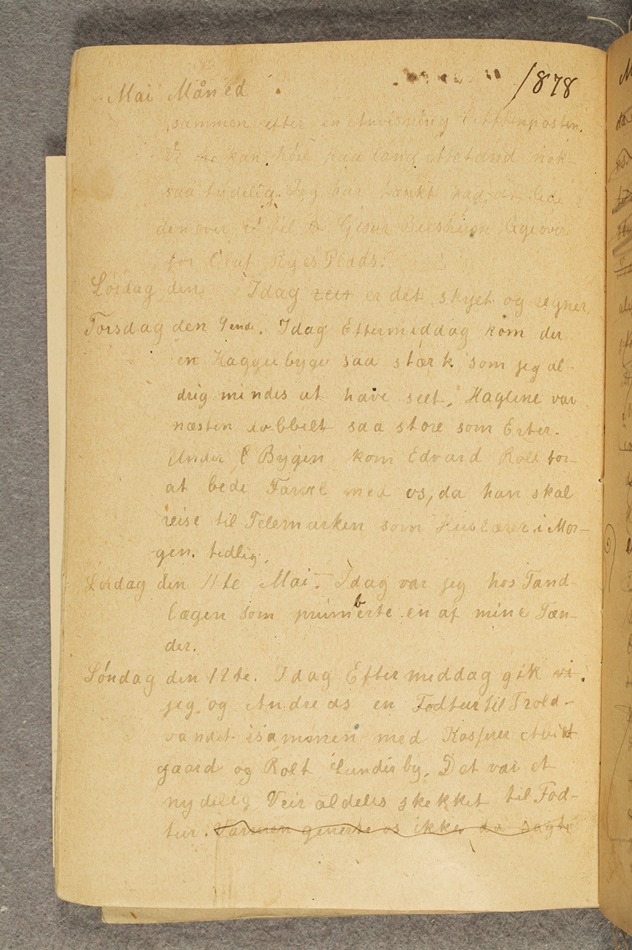 Mai Måned. 1878
sammen efter en Anvisning i Aftenposten.
Vi kan höre paa lang Afstand nok-
saa tydelig. Jeg har tænkt
den over til
for Olaf Ryes Plads.
Lördag den Idag er det skyet og regner.
Torsdag den 9ende. Idag Eftermiddag kom der
en Haggelbyge saa stærk som jeg al-
drig mindes at have seet. Haglene var
næsten dobbelt saa store som Erter.
Under Bygen kom Edvard Rolt for
at bede Farvel med os, da han skal
reise til Telemarken som Huslærer i Mor-
gen tidlig.
Lördag den 11te Mai. Idag var jeg hos Tand-
lægen som plumberte en af mine Tæn-
der.
Söndag den 12te. Idag Eftermiddag gik vi,
jeg og Andreas en Fodtur til Trold-
vandet isammen med
gaard og Rolt Lundeby. Det var et
nydelig Veir aldeles skekket til Fod-
tur. Varmen generte os ikke, da